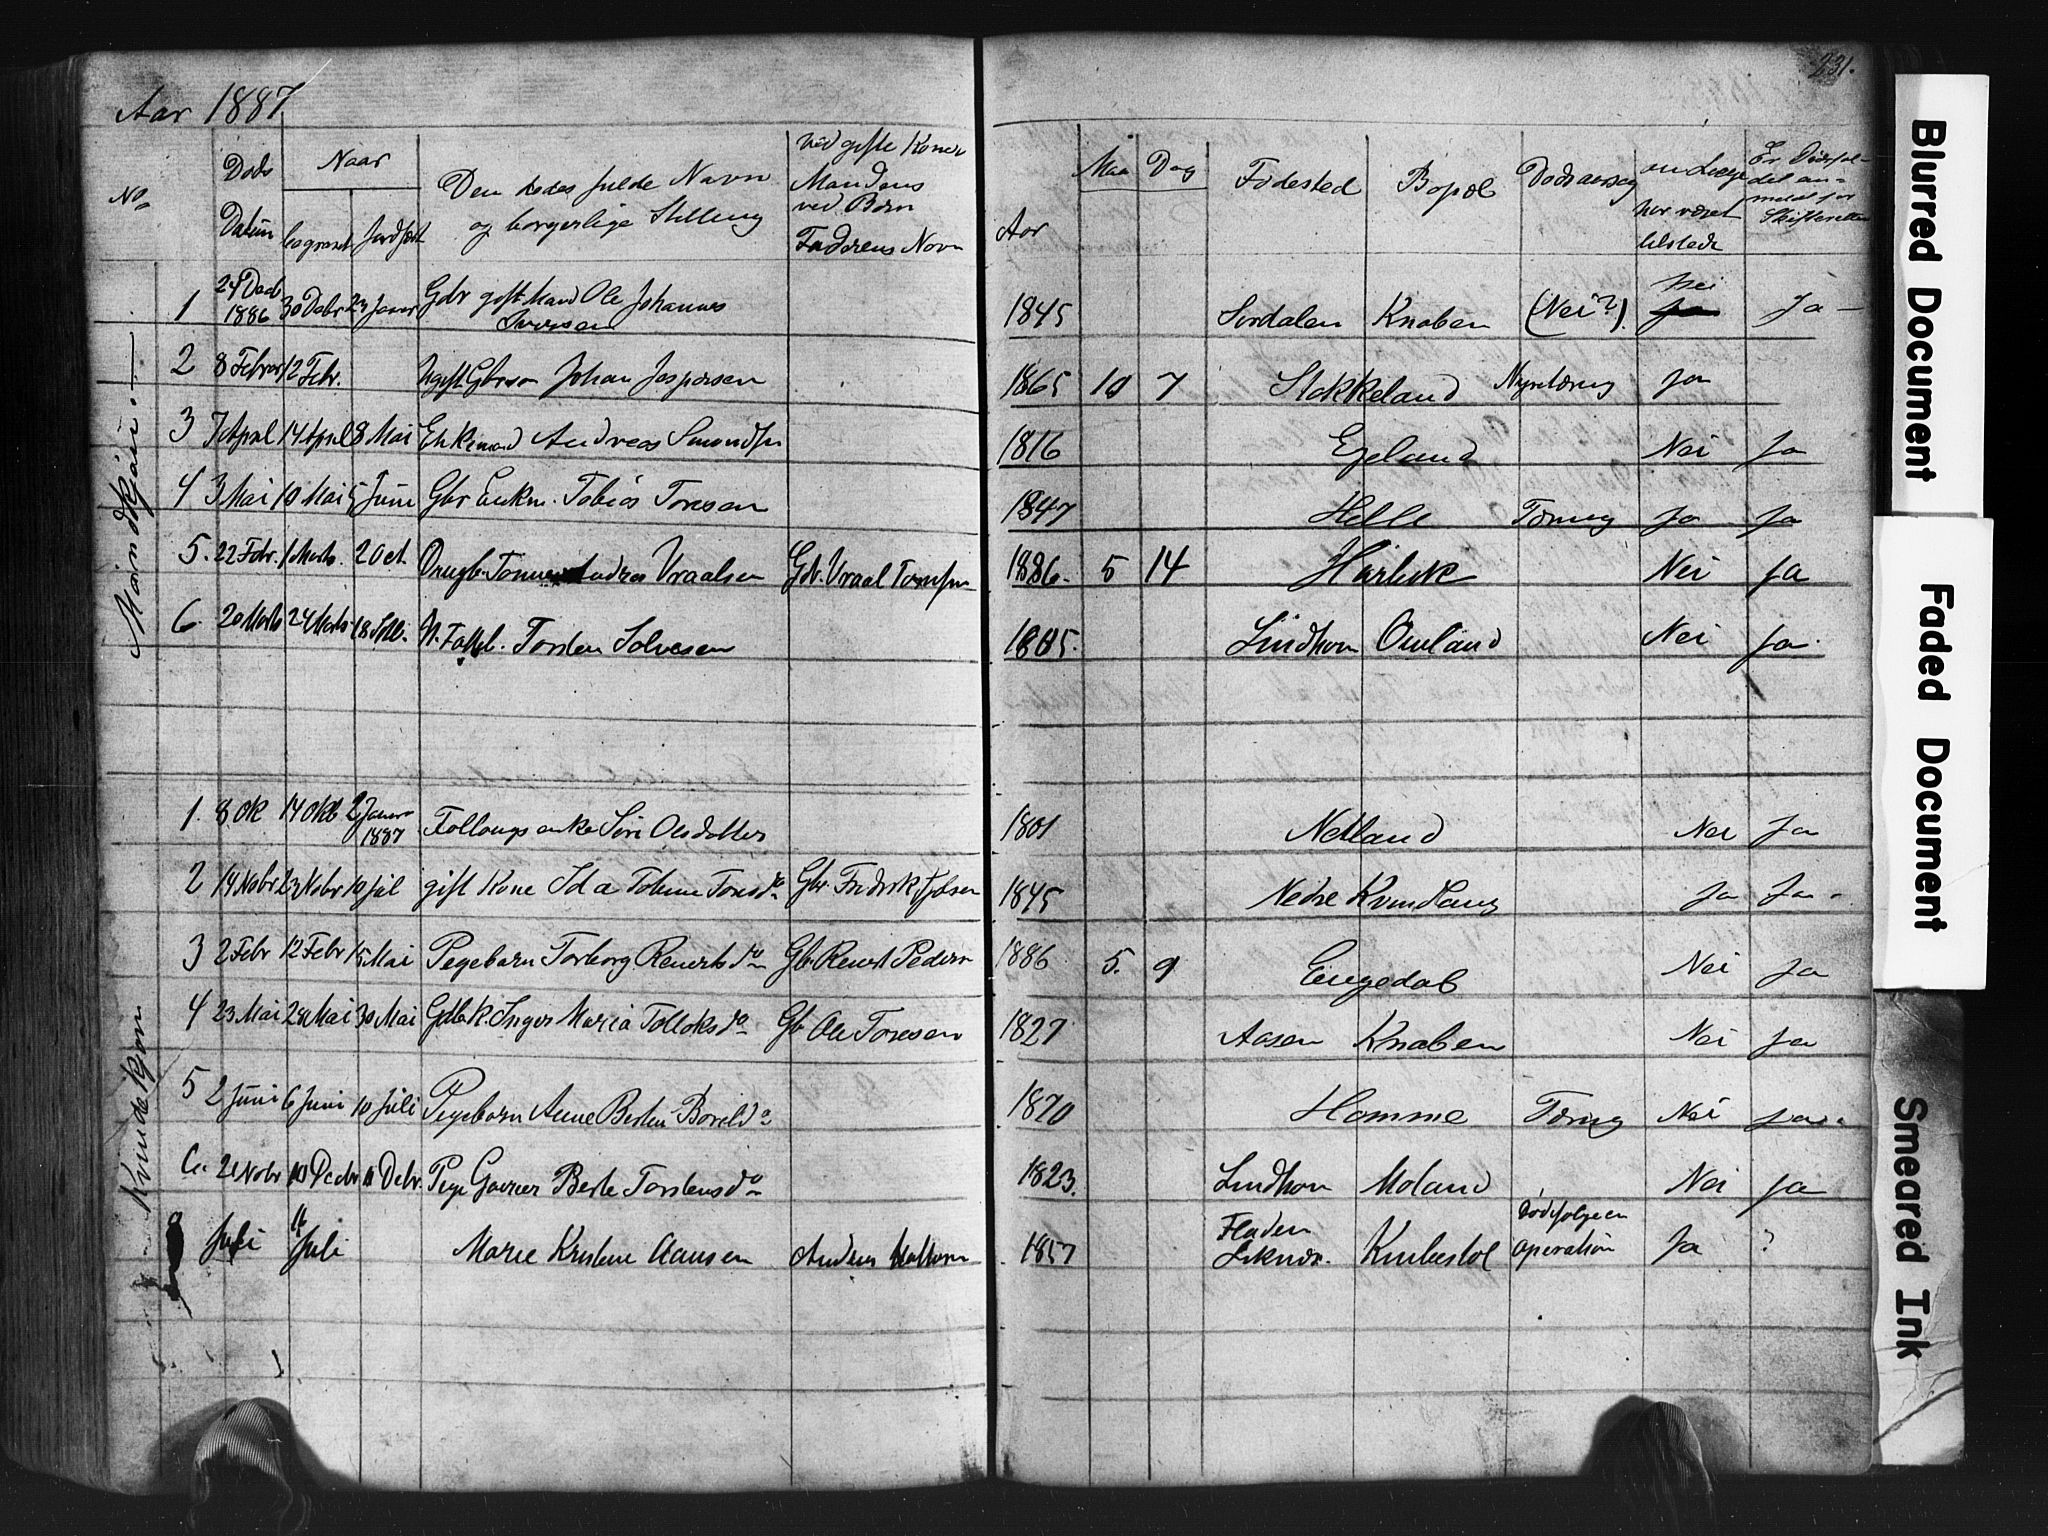 Aar 1887
231.
No
Døds
Datum
Naar
begravet
Jordfæst
Den dødes fulde Navn
og borgerlige Stilling
ved gifte Koner
Mandens
ved Børn
Faderens Navn
Aar
Maa
Dag
Fødested
Bopæl
Dødsaarsag
om Læge
har været
tilstede
Er Dødsfal-
det an-
meldt for
Skifteretten
Mandkjøn
1 24 Decb 1886 30 Decbr 23 Januar Gbr gift Mand Ole Johannes Iversen 1845 Sirdalen Knaben (Nei?) Nei Ja
2 8 Februar 12 Febr. Ugift Gbrsøn Johan Jespersen 1865 10 7 Stokkeland Ja
3 7 April 14 April 8 Mai Enkemand Andreas 1816 Egeland Nei Ja
4 3 Mai 10 Mai 5 Juni Gbr Enkm. Tobias Toresen 1847 Helle Tæring Ja Ja
5. 22 Febr. 1 Marts. 2 Oct Vraalsen Gbr. Vraal 1886. 5 14 Nei Ja
6. 20 Marts 24 Marts 18 Torsten Salvesen 1805. Lindhom Omland Nei Ja.
Kvindekjøn
1. 8 Ok 14 Okb 2 Januar 1887 enke Siri Olsdatter 1801 Netland Nei Ja
2 14 Nobr 23 Nobr 10 Jul gift Kone Ida Gbr. Fredrik 1845 Nedre Kvindlaug Ja Ja
3 2 Febr 12 Febr 15 Mai Pegebarn Torborg Reierts da Gb. Reiert Pedersen 1886 5. 9 Engedal Nei Ja
4 23 Mai 28 Mai 30 Mai Gbk. Inger Maria Tolloks da Gb Ole Toresen 1827 Aasen Knaben Nei Ja
5 2 Juni 6 Juni 10 Juli Pegebarn Anne 1870 Homme Tæring Nei Ja
6. 21 Nobr 10 Decbr 11 Debr. Berte Torstens da 1823. Lindhom Moland Nei Ja
Juli 16 Juli Marie Kristine Hansen Andreas 1857 Fladen Liknes. Dødsfølge en operation Ja ?
Blurred Document
Faded Document
Smeared Ink